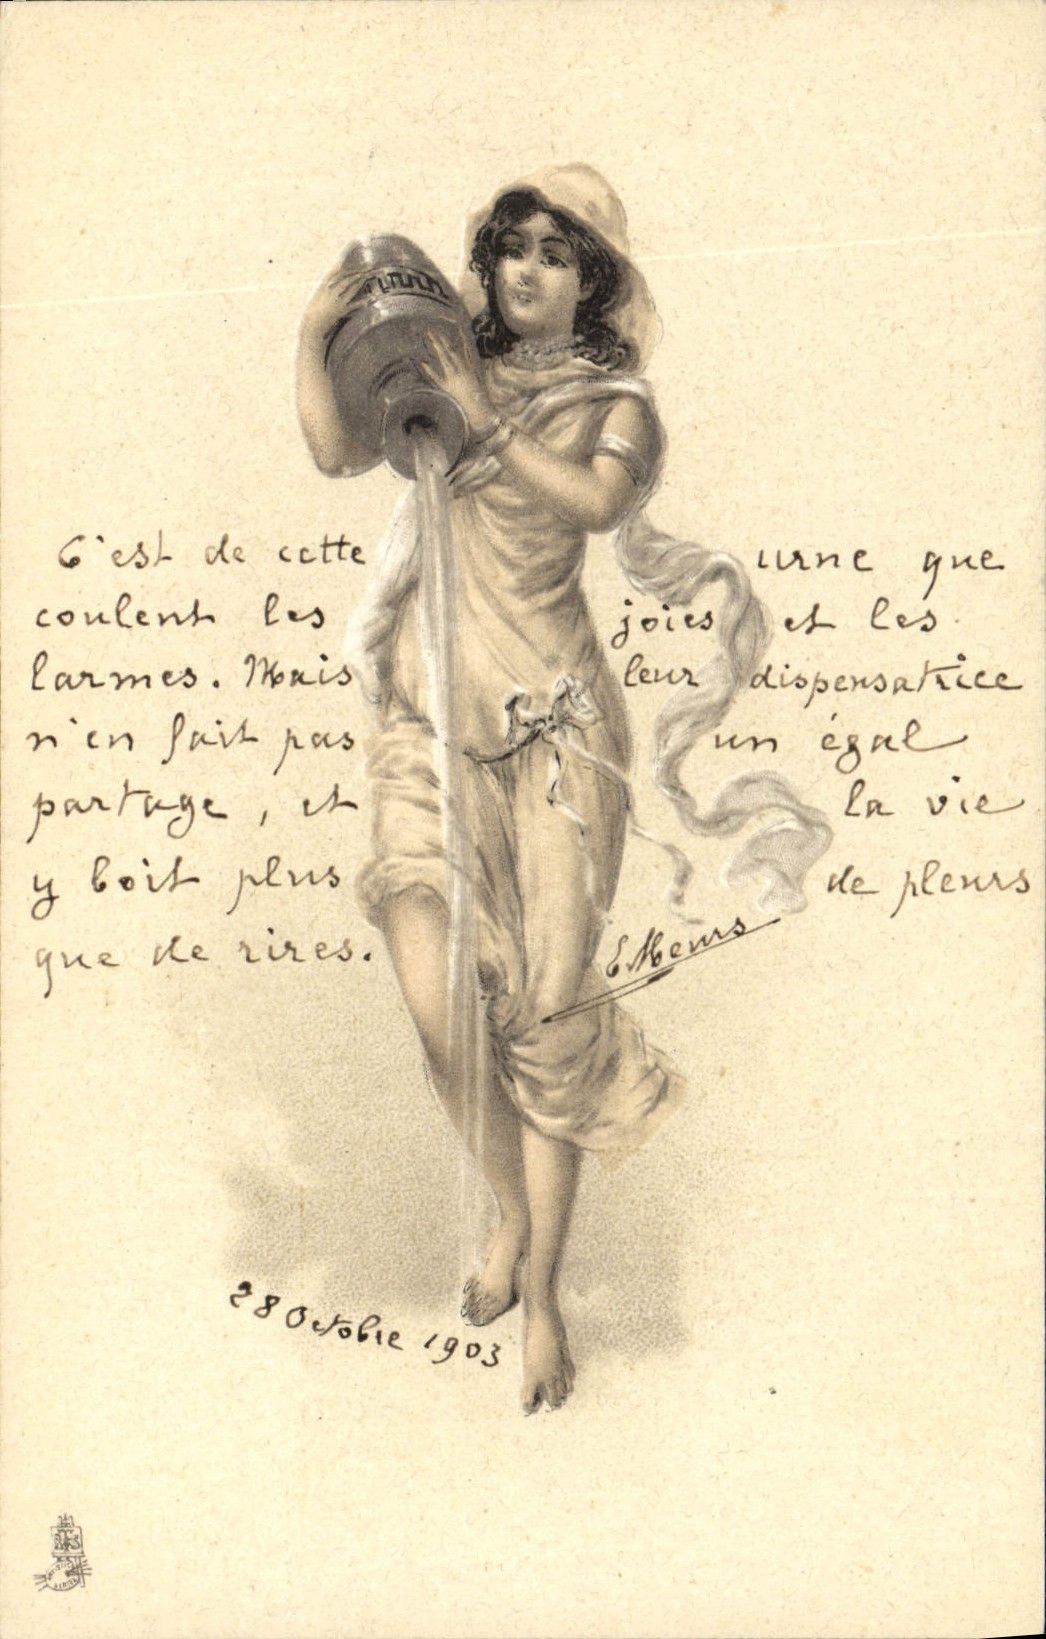 C'est de cette urne que
coulent les joies et les
larmes. Mais leur dispensatrice
n'en fait pas un égal
partage, et la vie
y boit plus de pleurs
que de rires.
E Meurs
28 Octobre 1903